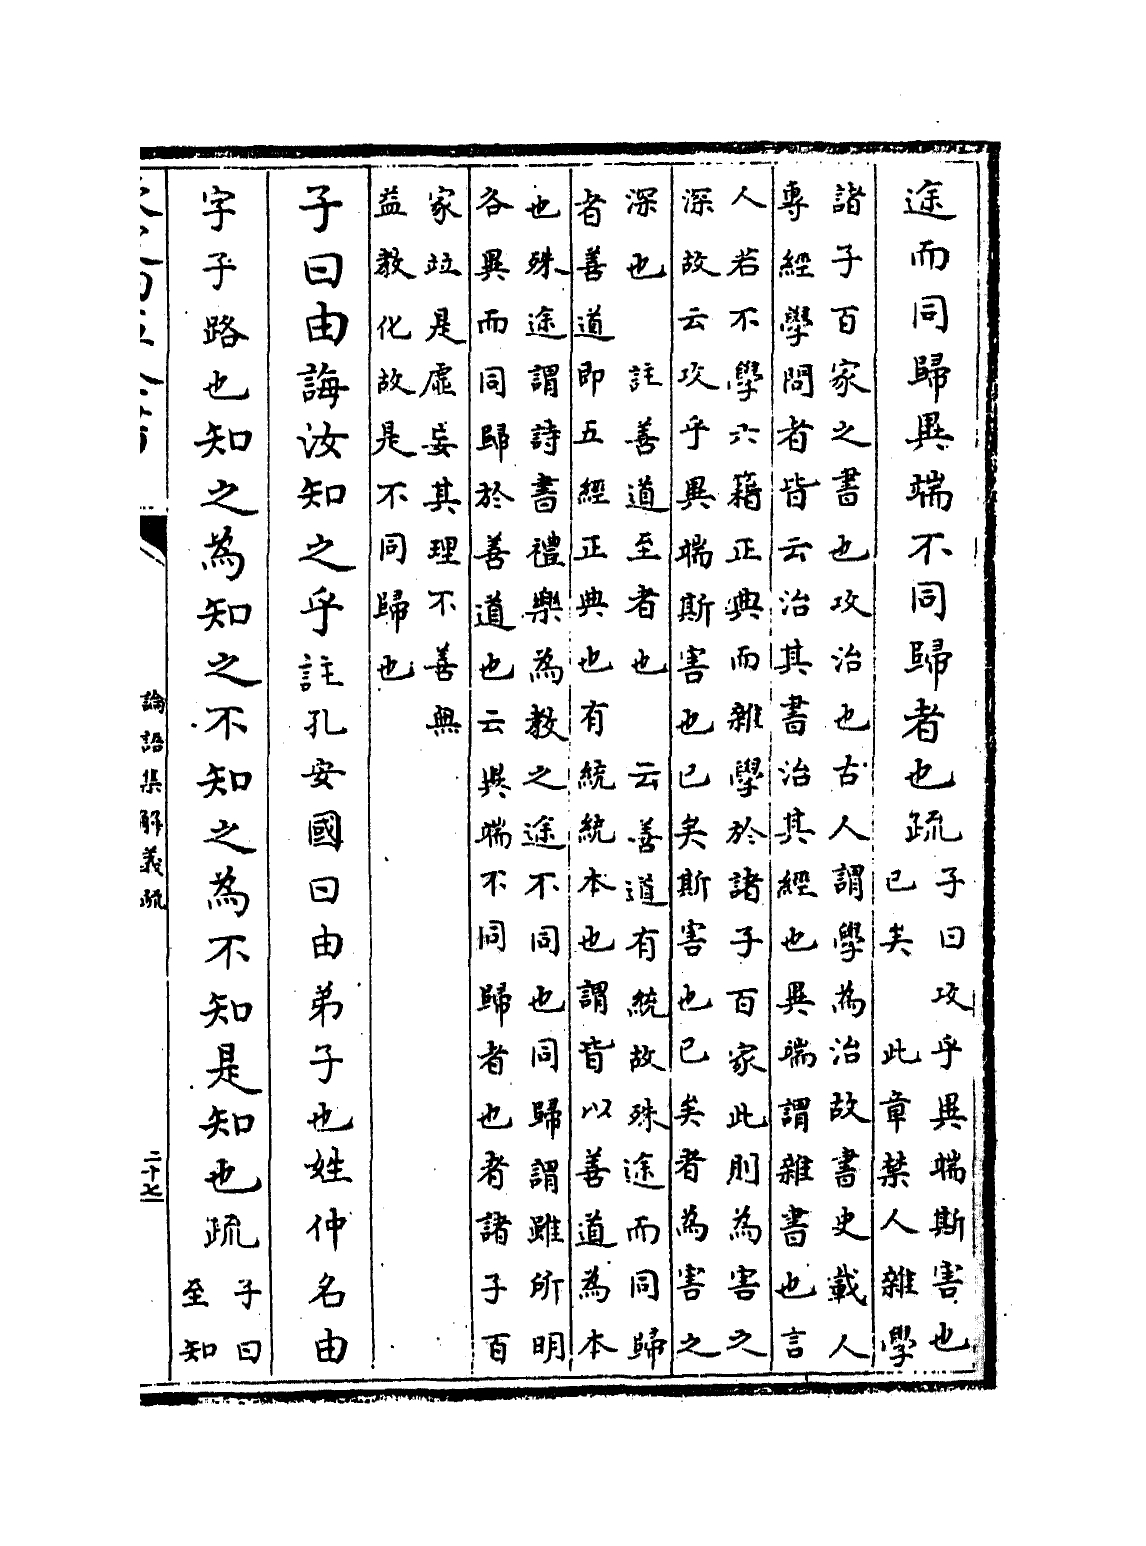 途而同歸異端不同歸者也疏
子曰攻乎異端斯害也
已矣　此章禁人雜學
諸子百家之書也攻治也古人謂學為治故書史載人
專經學問者皆云治其書治其經也異端謂雜書也言
人若不學六籍正典而雜學於諸子百家此則為害之
深故云攻乎異端斯害也已矣斯害也已矣者為害之
深也　註善道至者也　云善道有統故殊途而同歸
者善道即五經正典也有統統本也謂皆以善道為本
也殊途謂詩書禮樂為教之途不同也同歸謂雖所明
各異而同歸於善道也云異端不同歸者也者諸子百
家竝是虛妄其理不善無
益教化故是不同歸也
子曰由誨汝知之乎註孔安國曰由弟子也姓仲名由
字子路也知之為知之不知之為不知是知也疏
子曰
至知
論語集解義疏
二十七